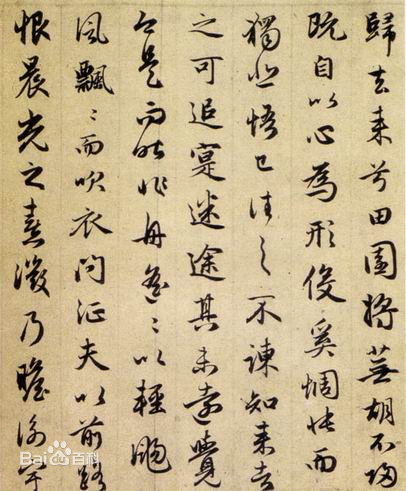 歸去来兮田園將蕪胡不歸
既自以心為形役奚惆悵而
獨悲悟已往之不諫知来者
之可追寔迷途其未遠覺
今是而昨非舟遙〻以輕颺
風飄〻而吹衣問征夫以前路
恨晨光之熹微乃瞻衡宇
Bai百科